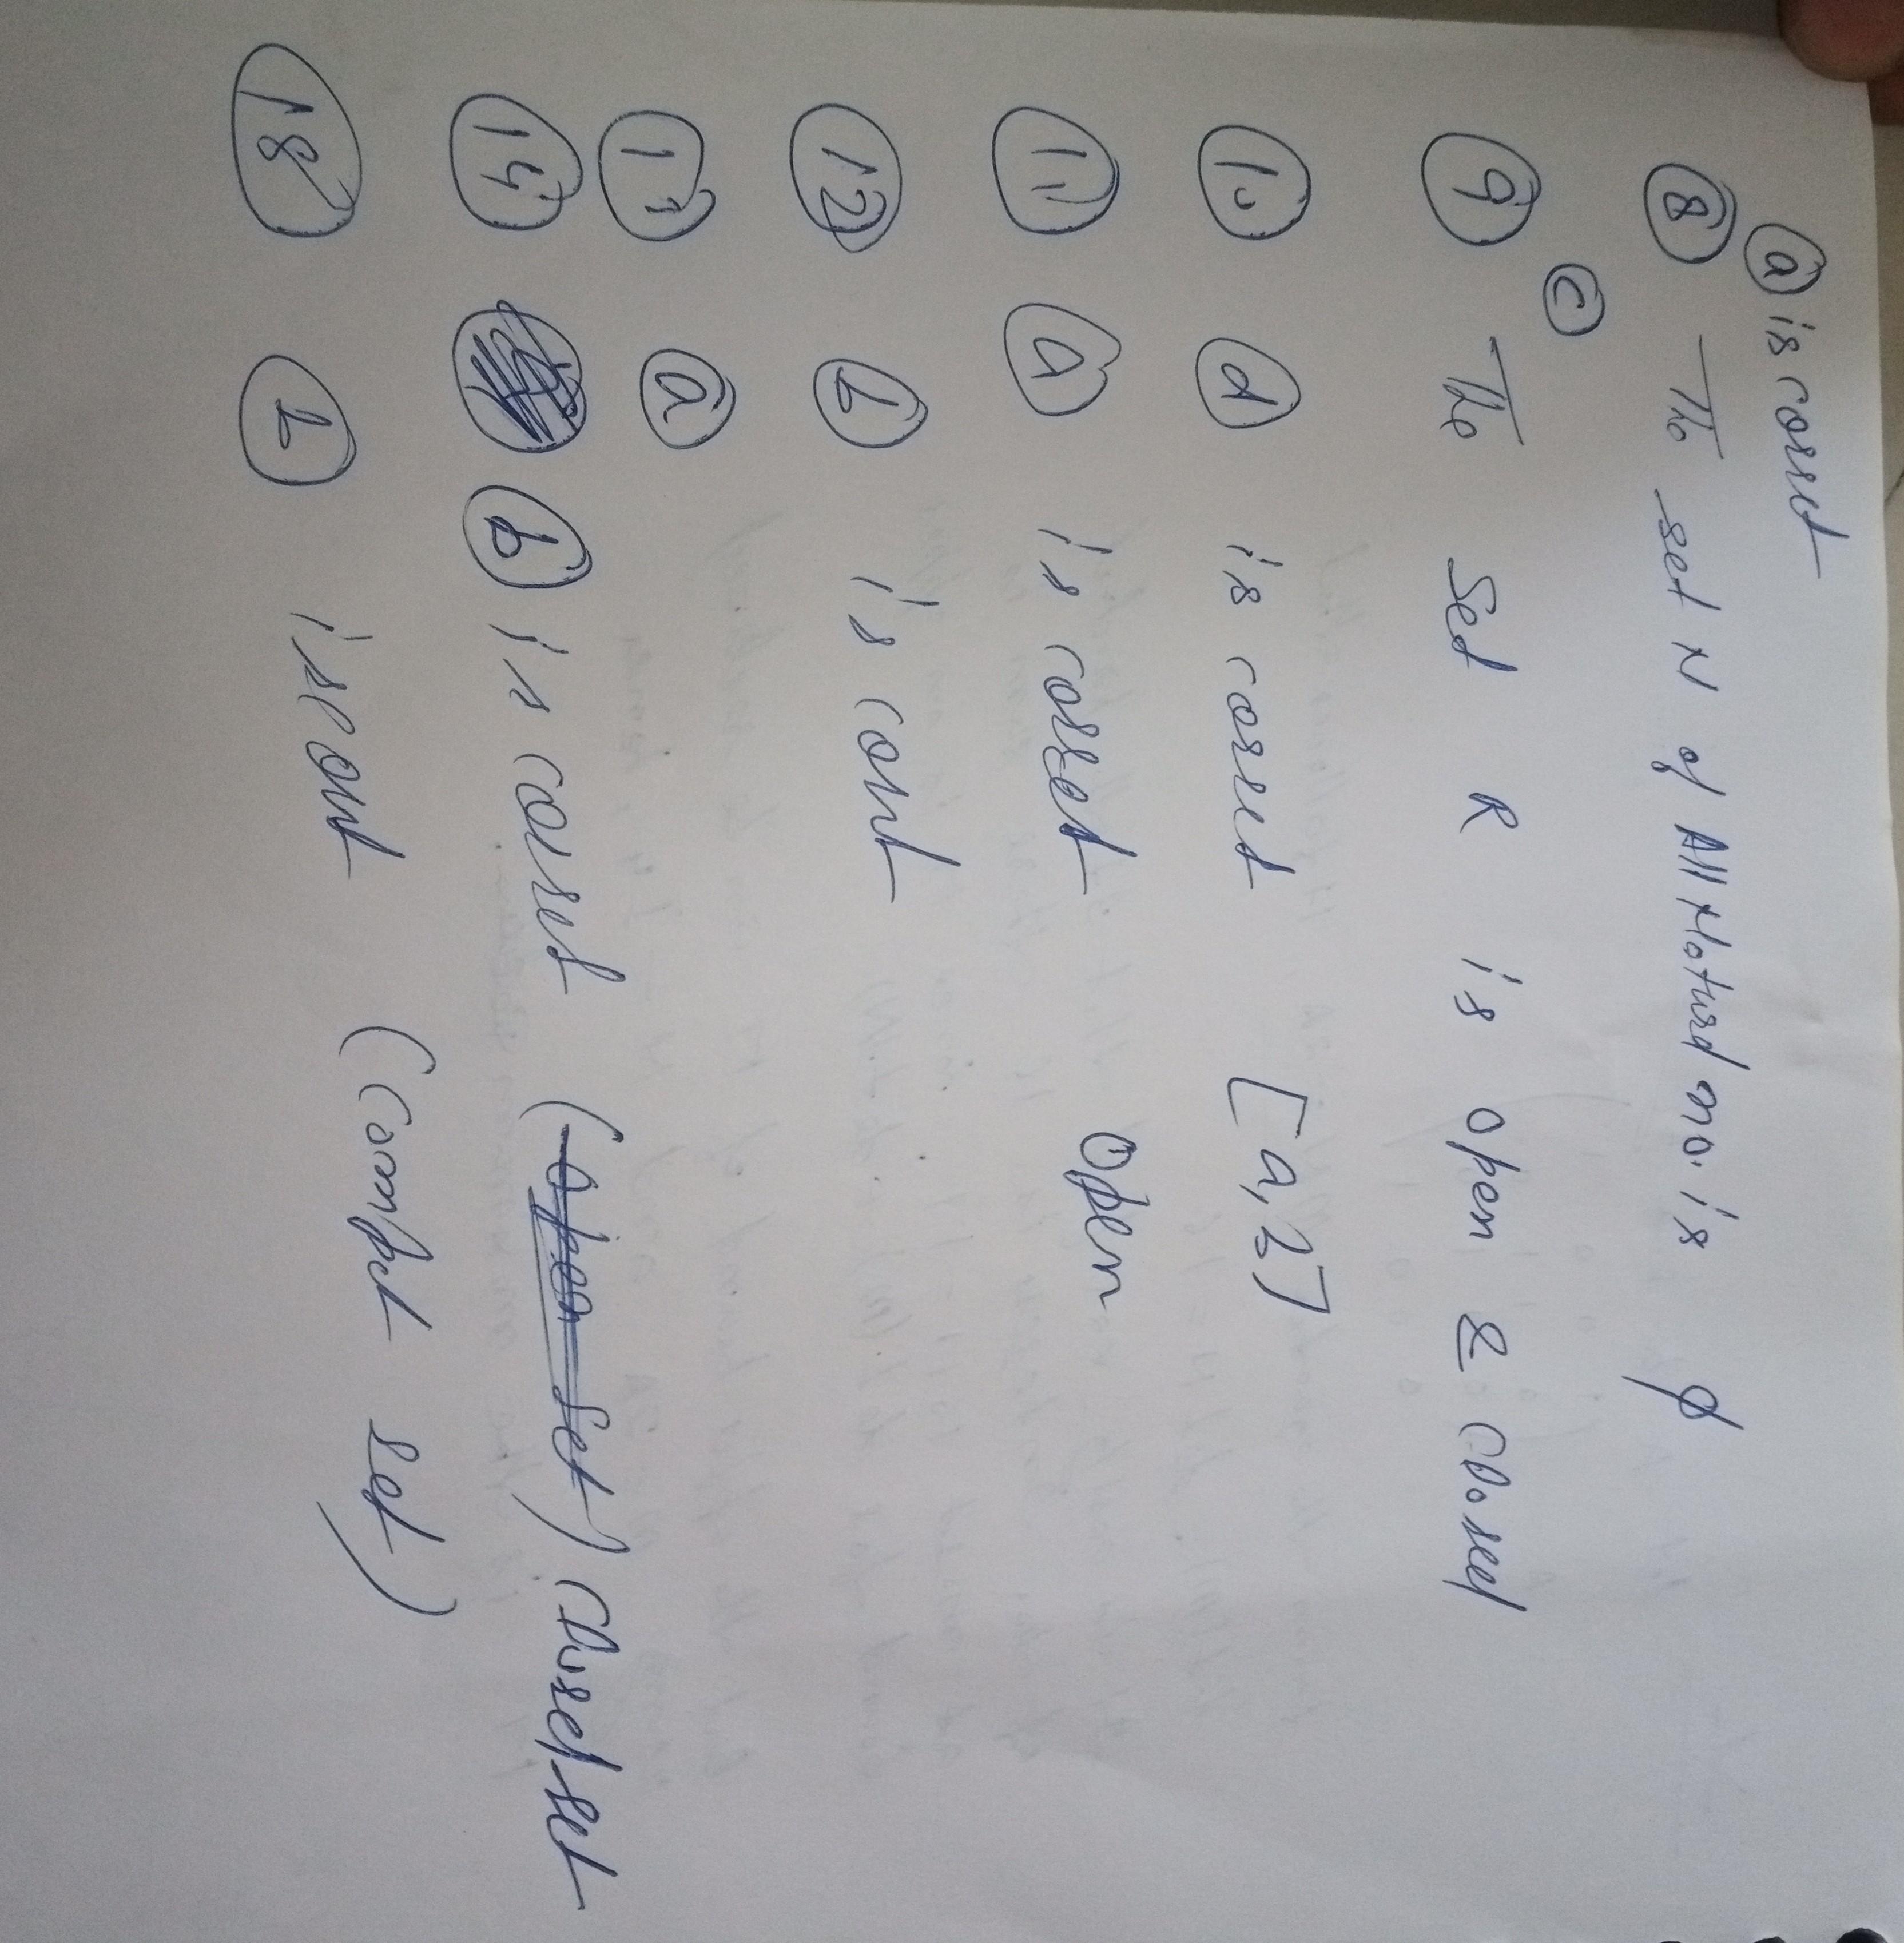 (a) is corret
(8) The set N of All Natural no. is φ
(c)
(9) The Set R is open & closed
(10) (d) is corret [a, b]
(11) (a) is corret open
(12) (b) is corrt
(a)
(14) (b) is corret (open set) closed set
(18) (b) is corrt (compet set)